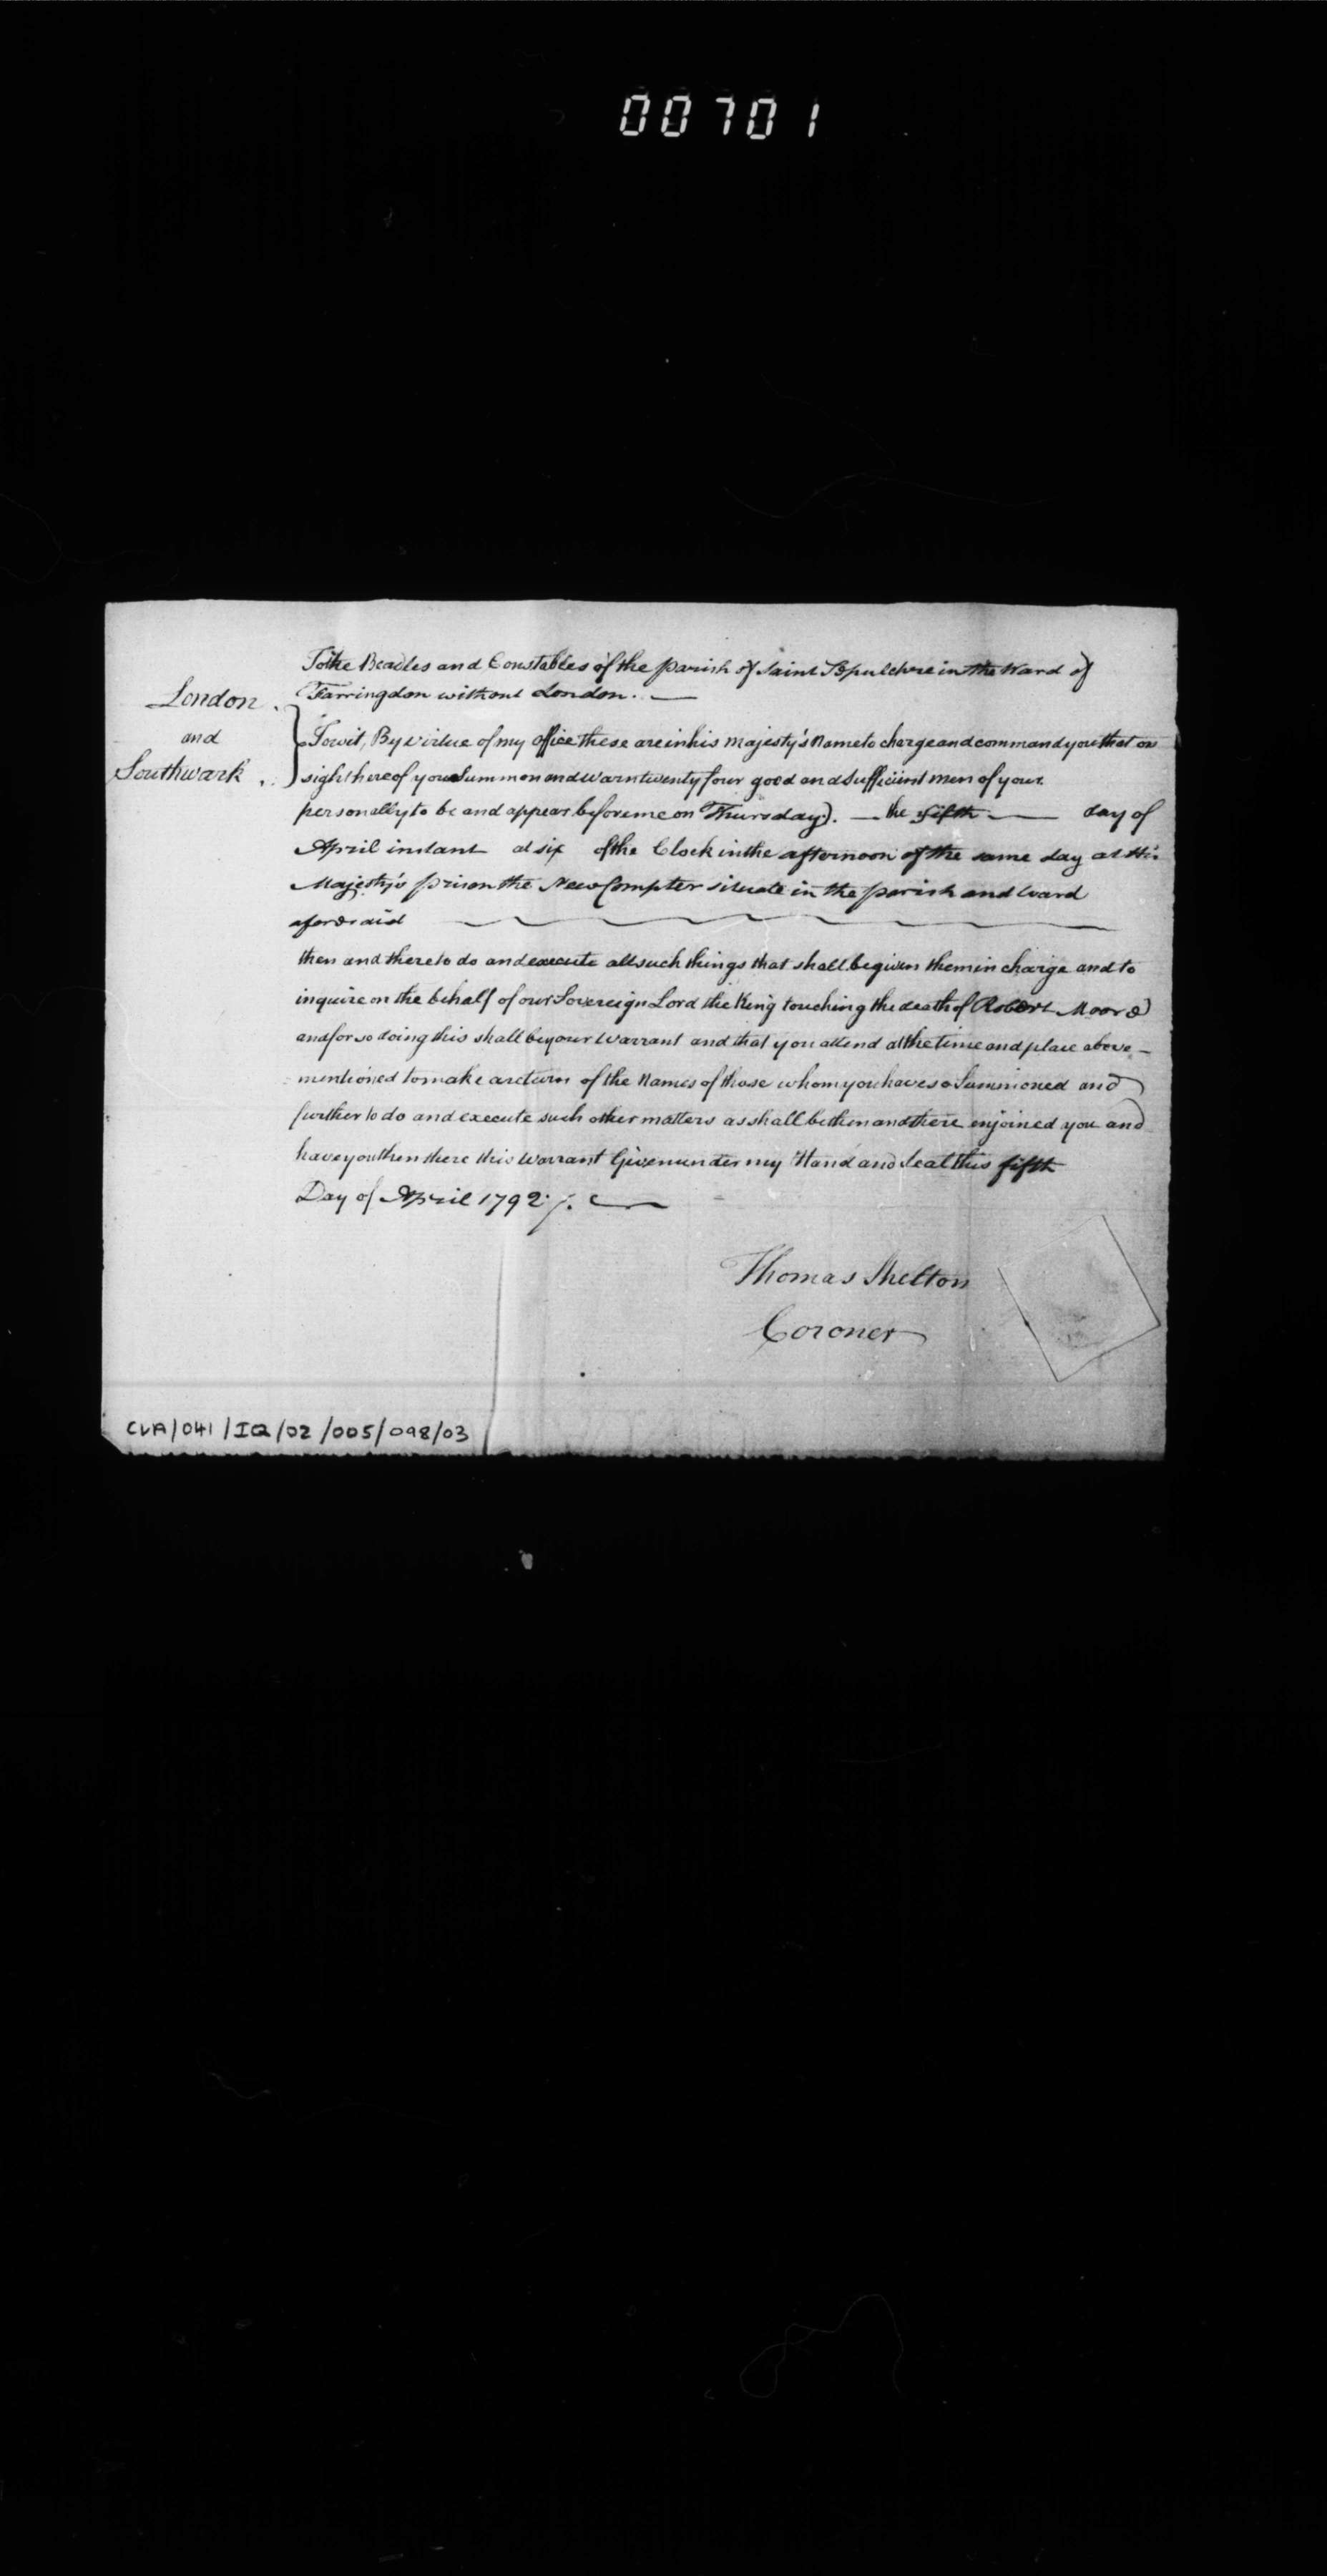 00701
To the Beadles and Constables of the parish of Saint Sepulchre in the Ward of
London
Farringdon without London.
and
Towit, By virtue of my office these are in his Majesty's Name to charge and command you that on
Southwark
sight hereof you Summon and warn twenty four good and sufficient men of your
personally to be and appear before me on Thursday. the fifth day of
April instant at six of the Clock in the afternoon of the same day at His
Majesty's prison the New Compter situate in the parish and Ward
aforesaid
then and there to do and execute all such things that shall be given them in charge and to
inquire on the behalf of our Sovereign Lord the King touching the death of Robert Moore
and for so doing this shall be your Warrant and that you attend at the time and place above-
mentioned to make a return of the Names of those whom you have so Summoned and
further to do and execute such other matters as shall be then and there enjoined you and
have you then there this Warrant Given under my Hand and Seal this fifth
Day of April 1792
Thomas Shelton
Coroner
CLA/041/IQ/02/005/098/03